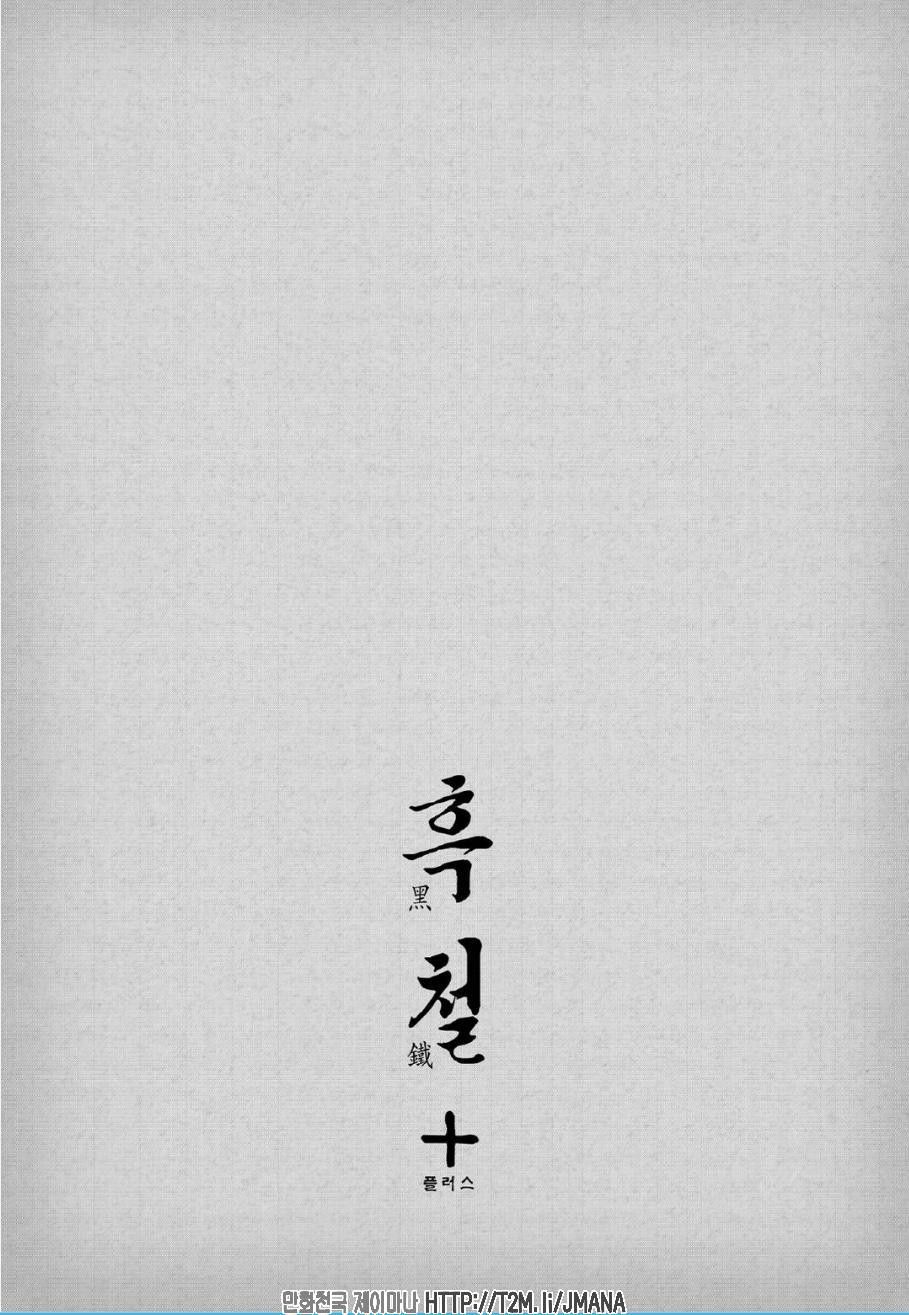 흑
黑
철
鐵
+
플러스
만화천국 제이마나 HTTP://T2M.li/JMANA